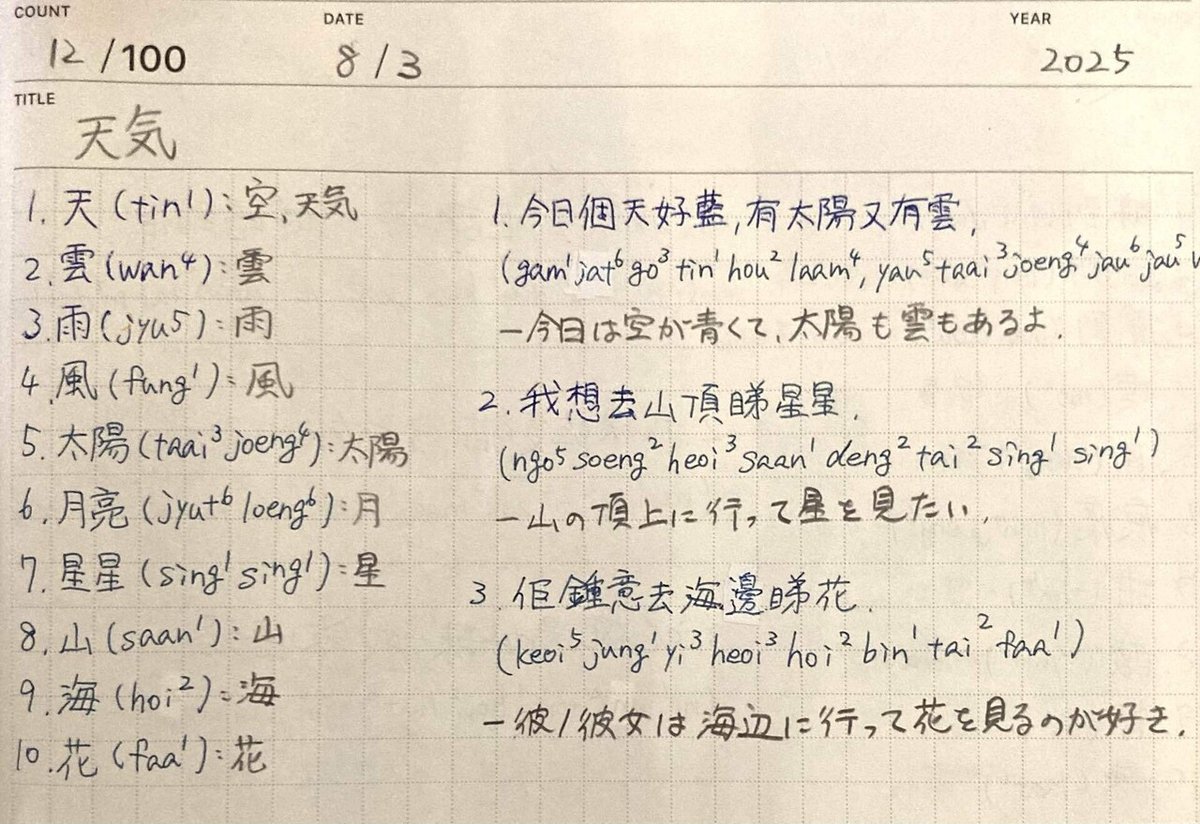 COUNT DATE YEAR
12/100 8/3 2025
TITLE
天気
1. 天 (tin¹): 空、天気
2. 雲 (wan⁴): 雲
3. 雨 (jyu5): 雨
4. 風 (fung¹): 風
5. 太陽 (taai³ joeng⁴): 太陽
6. 月亮 (jyut⁶ loeng⁶): 月
7. 星星 (sing¹ sing¹): 星
8. 山 (saan¹): 山
9. 海 (hoi²): 海
10. 花 (faa¹): 花
1. 今日個天好藍, 有太陽又有雲.
(gam¹ jat⁶ go³ tin¹ hou² laam⁴, yau⁵ taai³ joeng⁴ jau⁶ jau⁵
ー今日は空が青くて、太陽も雲もあるよ.
2. 我想去山頂睇星星.
(ngo⁵ soeng² heoi³ saan¹ deng² tai² sing¹ sing¹)
ー山の頂上に行って星を見たい.
3. 佢鍾意去海邊睇花.
(keoi⁵ jung¹ yi³ heoi³ hoi² bin¹ tai² faa¹)
ー彼/彼女は海辺に行って花を見るのが好き.